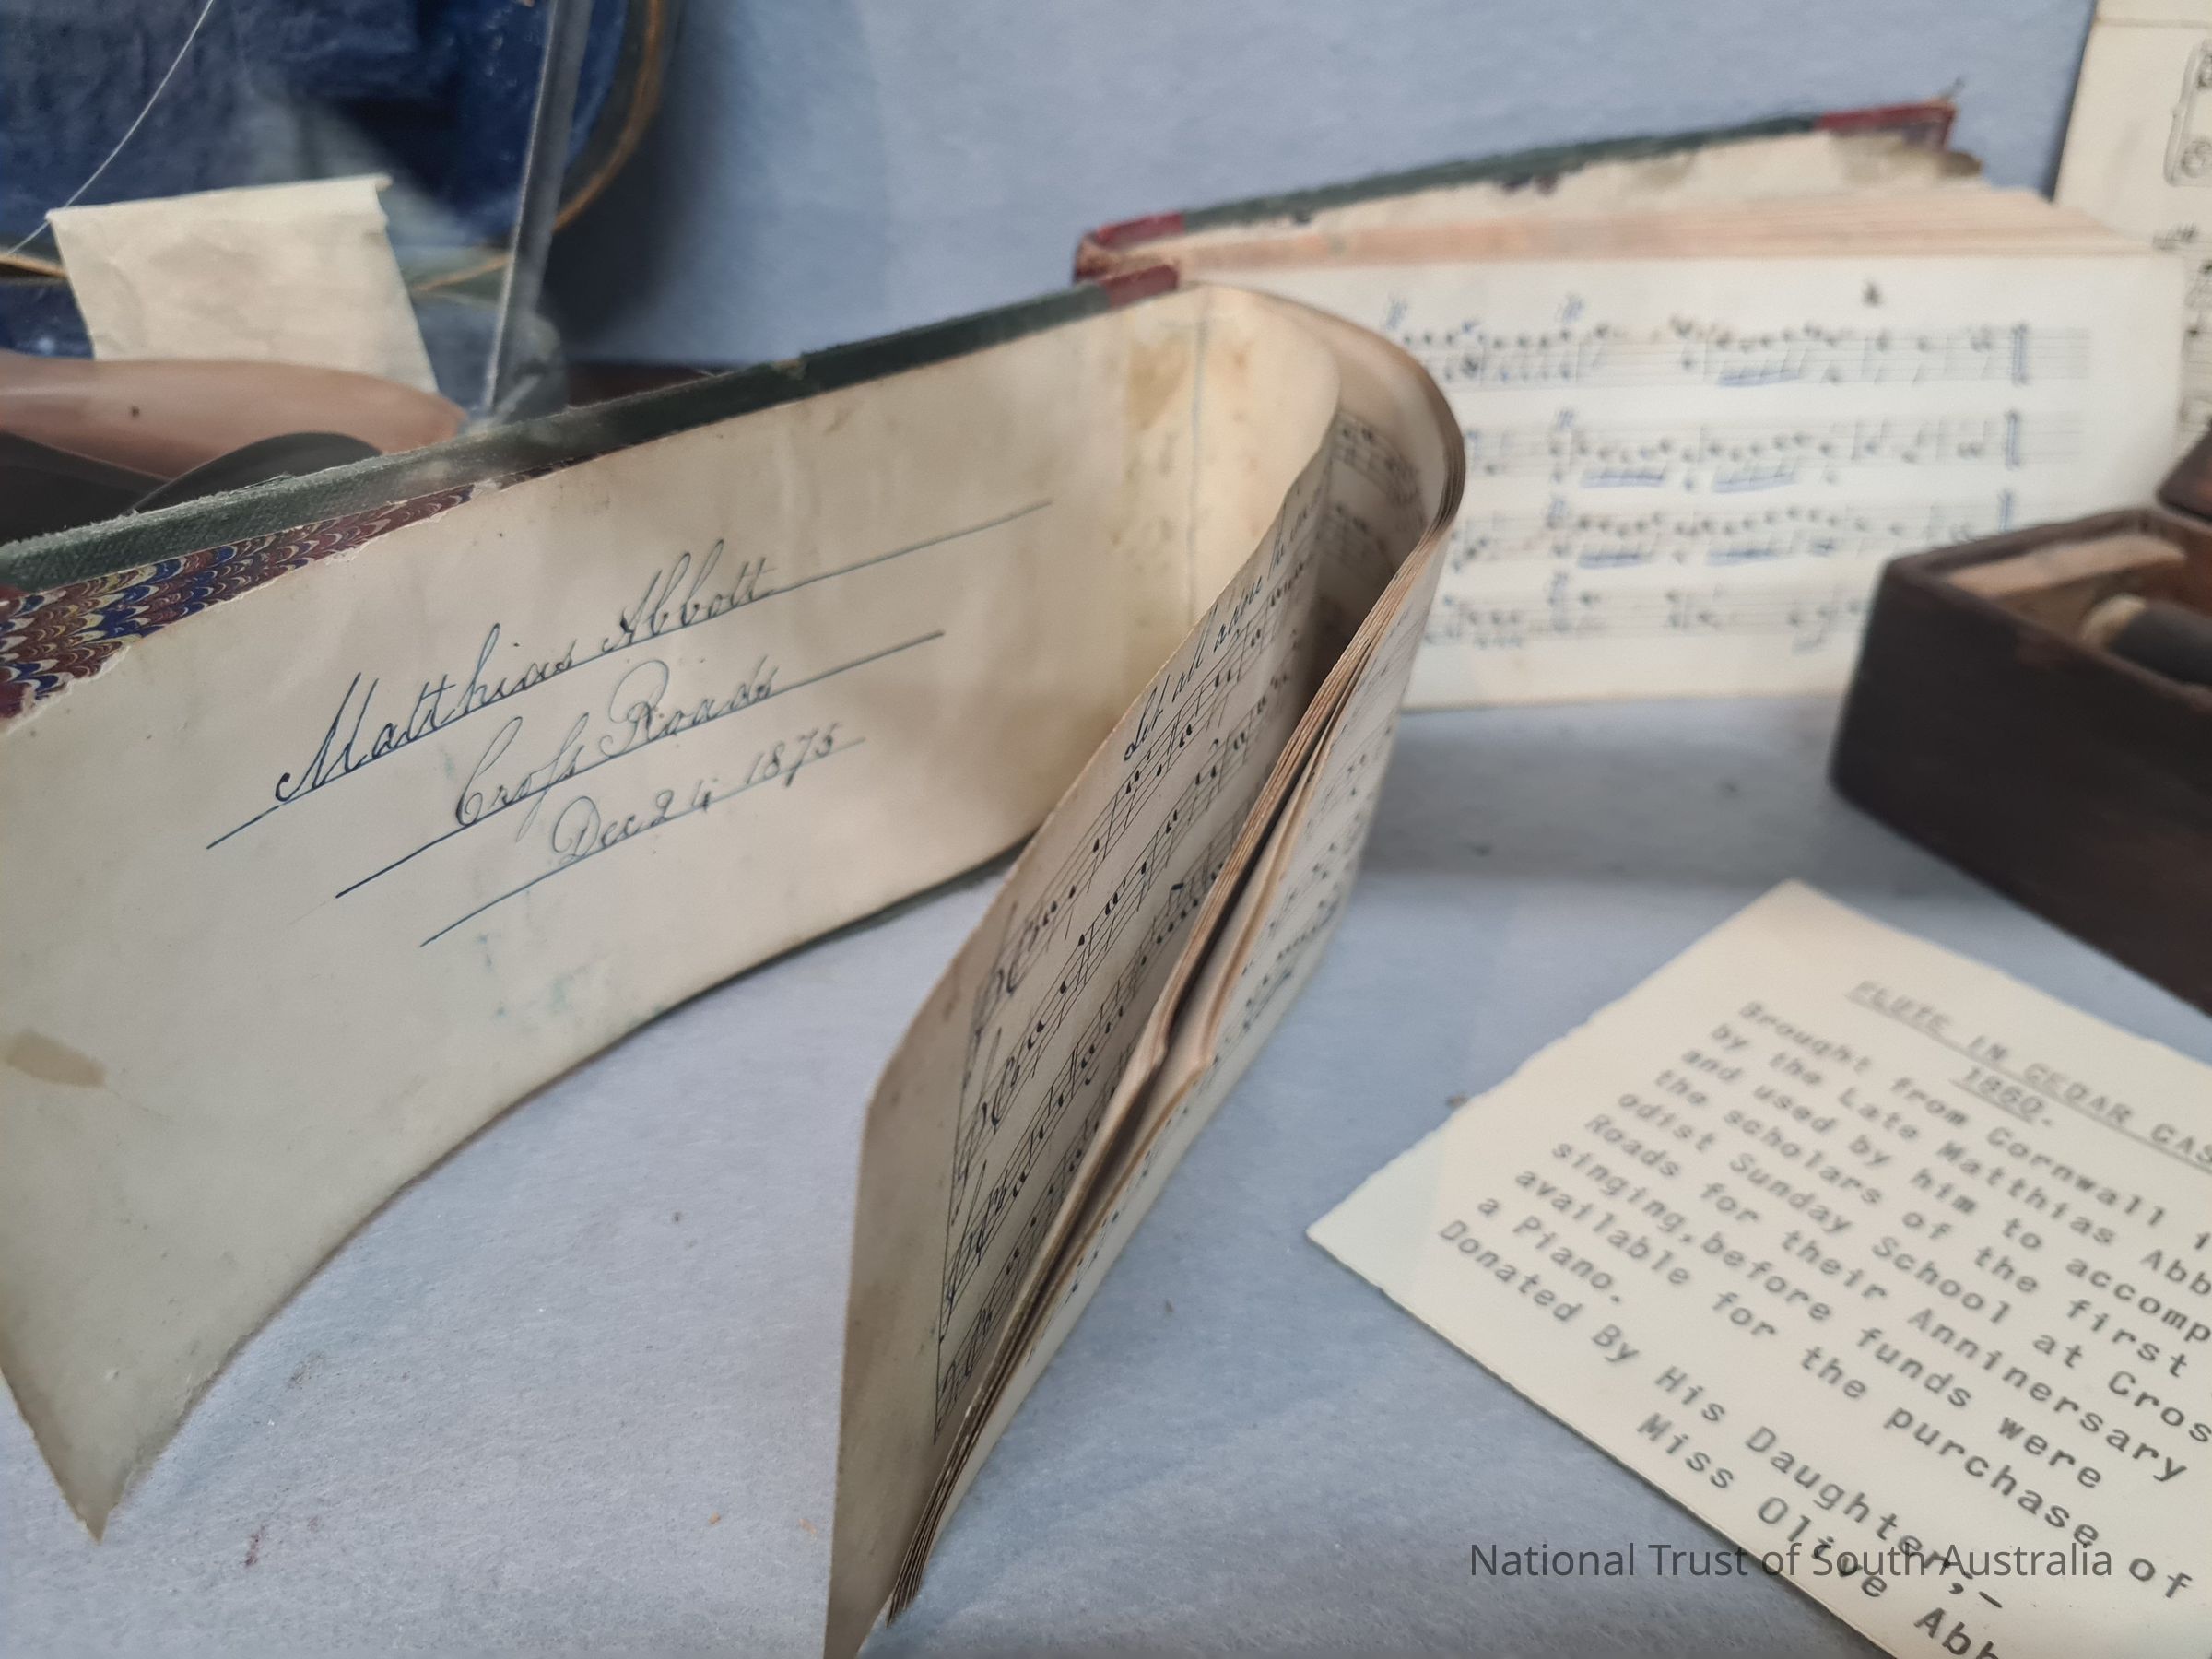 Matthias Abbott
Cross Roads
Dec 24 1875
Let all
FLUTE IN CEDAR CAS
1860.
Brought from Cornwall i
by the Late Matthias Abb
and used by him to accomp
the scholars of the first
odist Sunday School at Cros
Roads for their Anninersary
singing,before funds were
available for the purchase of
a Piano.
Donated By His Daughter,-
Miss Olive Abb
National Trust of South Australia